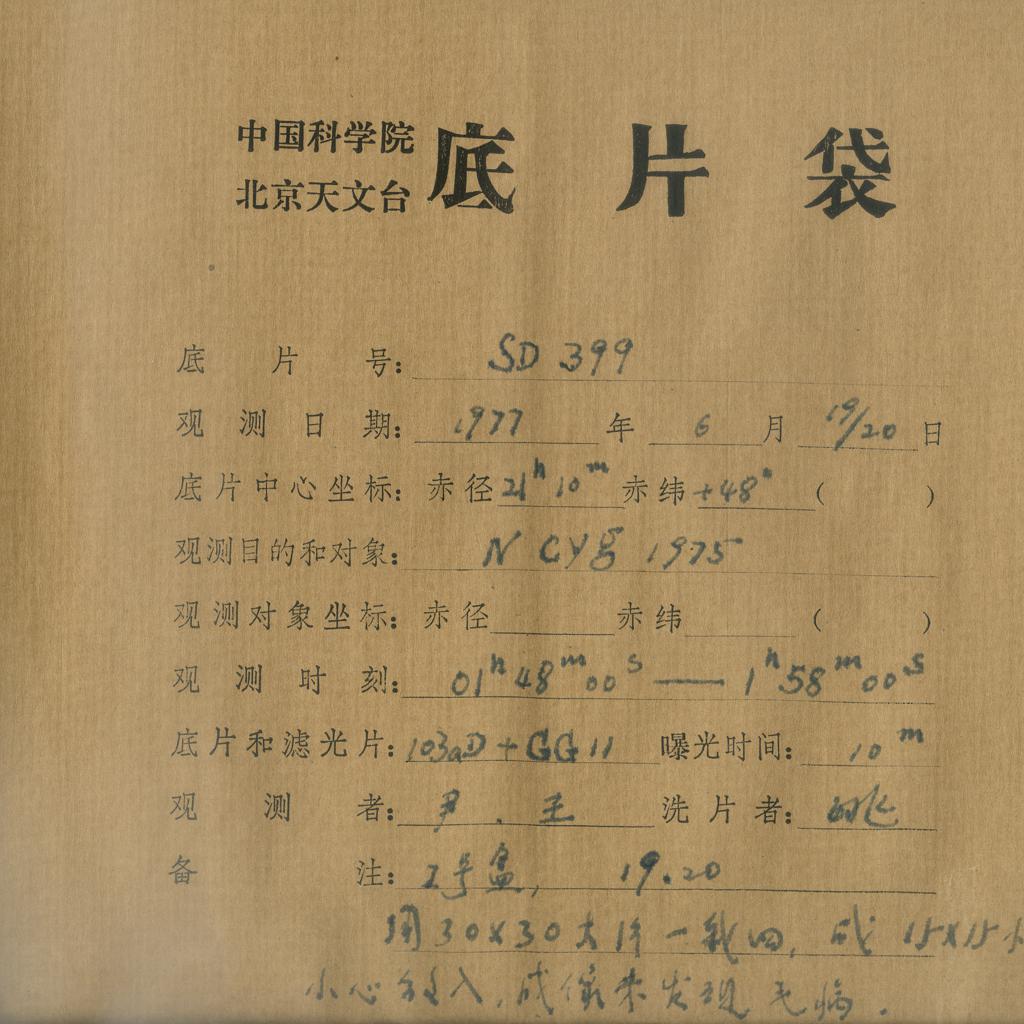 中国科学院
北京天文台
底片袋
底片号: SD 399
观测日期: 1977 年 6 月 19/20 日
底片中心坐标: 赤径 21h 10m 赤纬 +48° ( )
观测目的和对象: N CYg 1975
观测对象坐标: 赤径 赤纬 ( )
观测时刻: 01h 48m 00s — 1h 58m 00s
底片和滤光片: 103aD + GG 11 曝光时间: 10m
观测者: 尹. 王 洗片者:
备注: 2号盒, 19.20
用 30×30 大片一裁四, 成 15×15
小心放入, 成像未发现毛病.